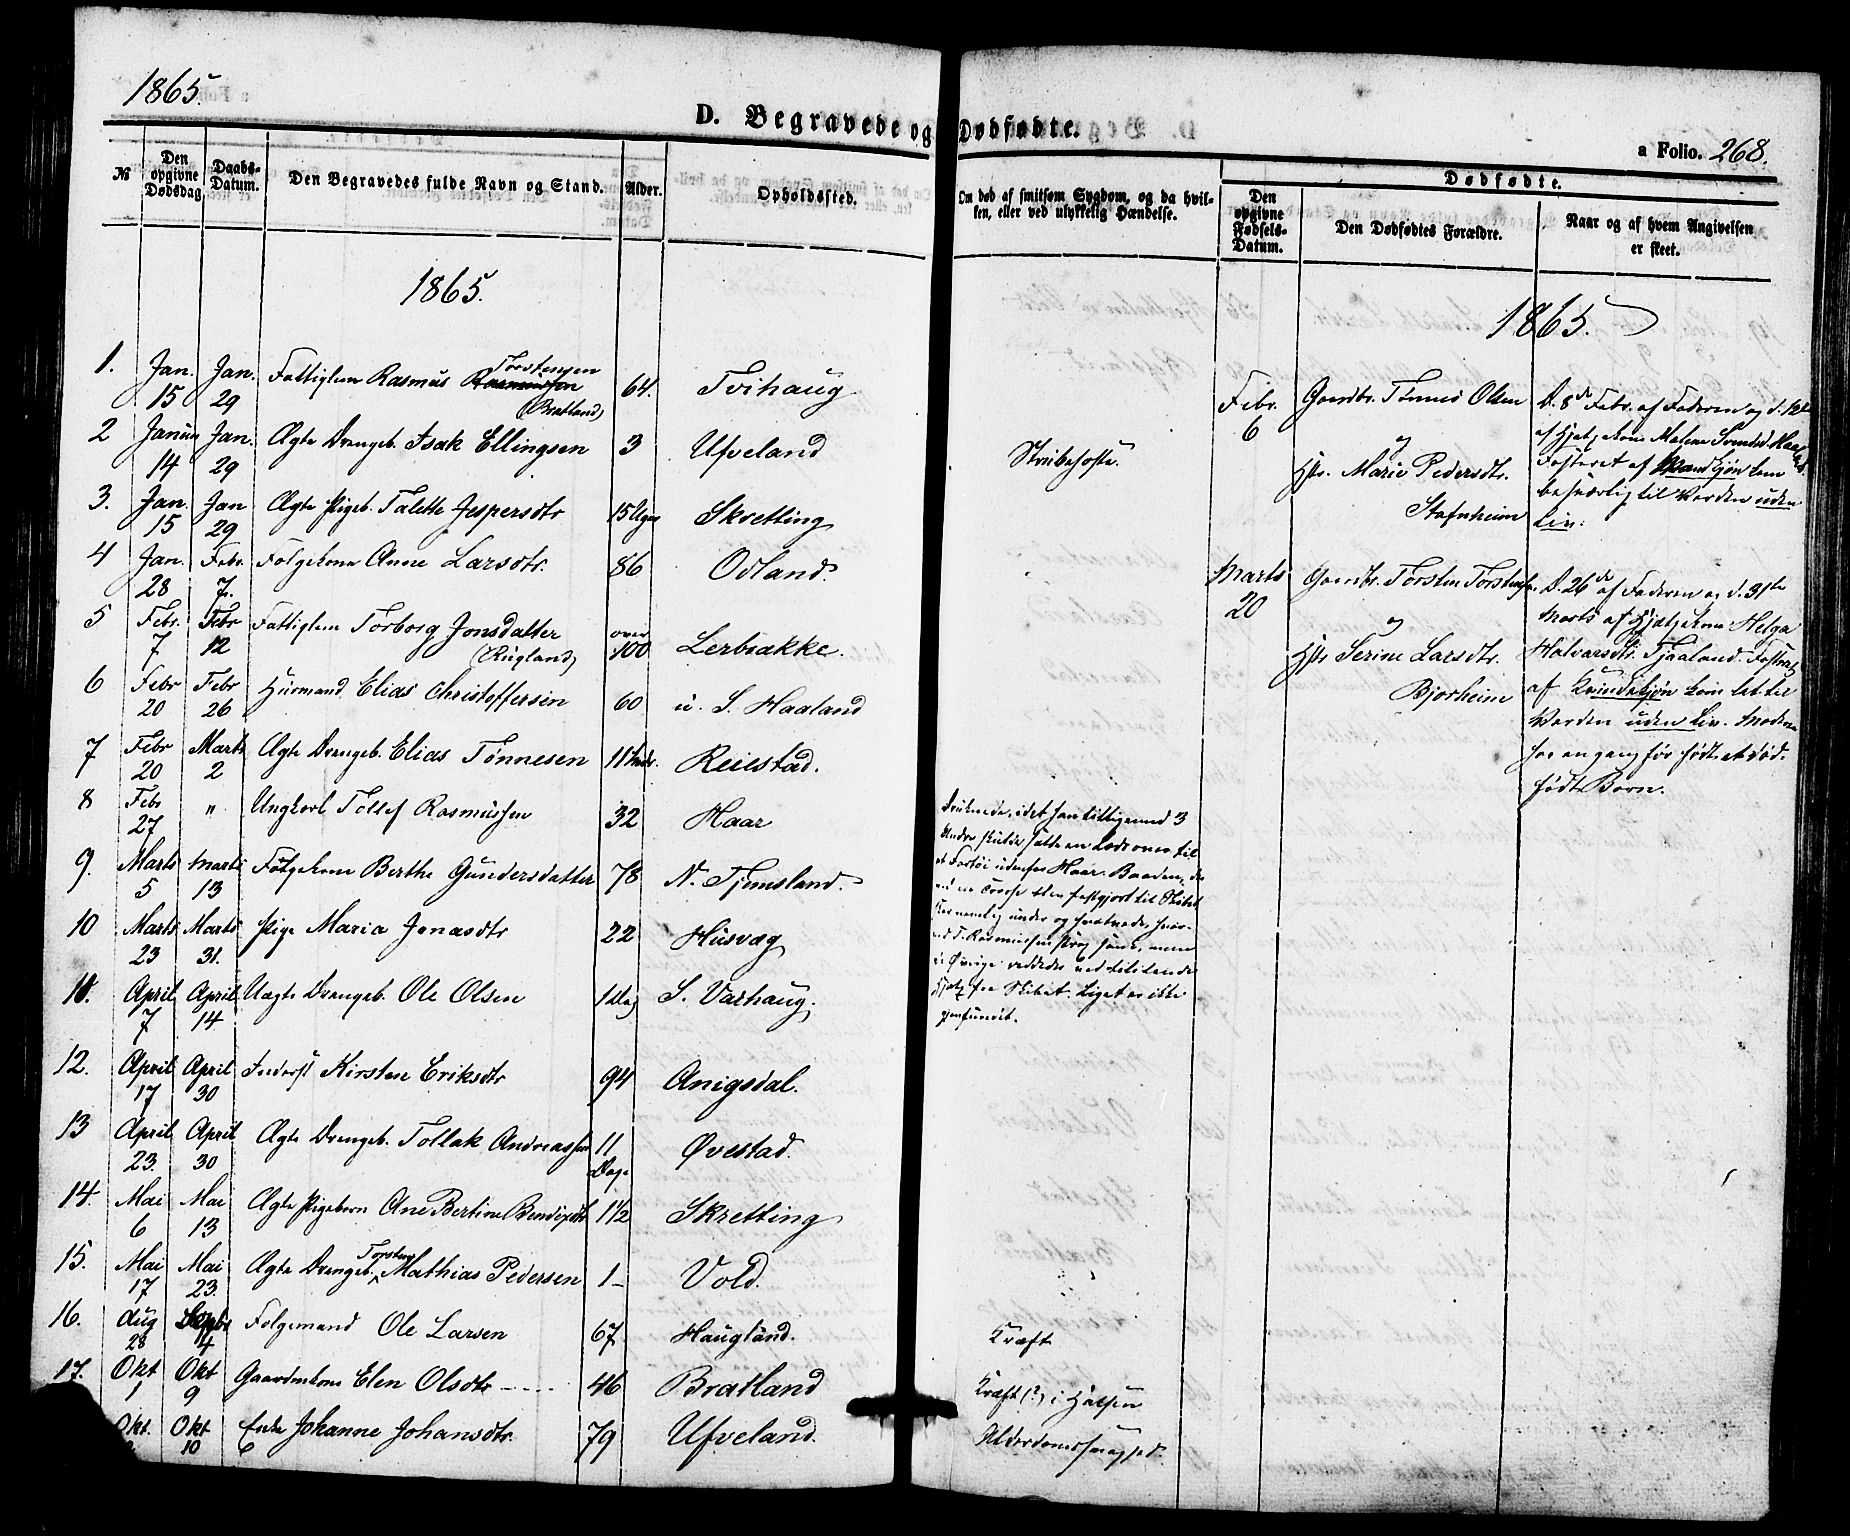 1865.
D. Begravede og Dødfødte.
a Folio. 268.
№
Den opgivne Dødsdag
Daabs-Datum.
Den Begravedes fulde Navn og Stand.
Alder.
Opholdssted.
Om død af smitsom Sygdom, og da hvilken, eller ved ulykkelig Hændelse.
Dødfødte.
Den opgivne Fødsels-Datum.
Den Dødfødtes Forældre.
Naar og af hvem Angivelsen er skeet.
1865.
1865.
1. Jan. 15 Jan. 29 Fattiglem Rasmus Rasmussen Torstensen (Bratland) 64. Tvihaug
2 Januar 14 Jan. 29 Ægte Drengeb. Isak Ellingsen 3 Ufveland Strubehoste.
3. Jan. 15 Jan 29 Ægte Pigeb. Talette Jespersdtr 15 Uger Skretting
4 Jan. 28 Febr. 7. Folgekone Anne Larsdtr. 86 Odland.
5 Febr. 7 Febr 12 Fattiglem Torborg Jonsdatter (Rugland) over 100 Lerbrække.
6 Febr 20 Febr 26 Huusmand Elias Christoffersen 60 u. S. Haaland
7 Febr 20 Marts 2 Ægte Drengeb. Elias Tønnesen Reiestad.
8 Febr 27 " Ungkarl Tollef Rasmussen 32 Haar
9. Marts 5 Marts 13 Følgekone Berthe Gundersdatter 78 N. Tjemsland.
10 Marts 23 Marts 31. Pige Maria Jonasdtr 22 Husvæg
11. April 7 April 14 Uægte Drengeb. Ole Olsen 1 Dag S. Varhaug.
12. April 17 April 30 Inderst Kirsten Eriksdtr 94 Anigsdal.
13 April 23. April 30 Ægte Drengeb. Tollak Andreassen 11 Dage Øvestad.
14. Mai 6 Mai 13 Ægte Pigebarn Ane Bertine Bendixdtr 1 1/2 Skretting
15. Mai 17 Mai 23. Ægte Drengeb. Torsten Mathias Pedersen 1 – Vold.
16. Aug 28 Septbr 4 Folgemand Ole Larsen 67 Haugland. Kræft
17. Okt 1 Okt 9 Gaardmkone Elen Olsdtr 46 Bratland Kræft (?) i Halsen
Okt. Okt 10 Enke Johanne Johansdtr. 79 Ufveland. Alderdomssvaghed.
Druknede, idet han tilligemed 3
Andre skulde sætte en Lods ombord til
et Fartøi udenfor Haar. Baaden, der
ved en Trosse blev fastgjort til Skibet
kom nemlig under og hvælvede, hvor-
ved T. Rasmussen strax sank, mens
de Øvrige reddedes ved tililende
Hjælp fra Skibet. Liget er ikke
gjenfundet.
Febr. 6
Gaardbr. Tønnes Olsen
og
Hstr. Marie Pedersdtr.
Stafnheim
D. 8de Febr. af Faderen og d. 12te
af Hjælpekone Malene Svendsd. Haar
Fosteret af Mandkjøn kom
besværlig til Verden uden
Liv.
Marts 20
Gaardbr. Torsten Torstensen
og
Hstr Serine Larsdtr.
Bjorheim
D. 26de af Faderen og d. 31te
Marts af Hjælpekone Helga
Halvarsdtr. Tjaaland. Fosteret
af Kvindekjøn kom let til
Verden uden Liv. Moderen
har en gang før født et død-
født Barn.